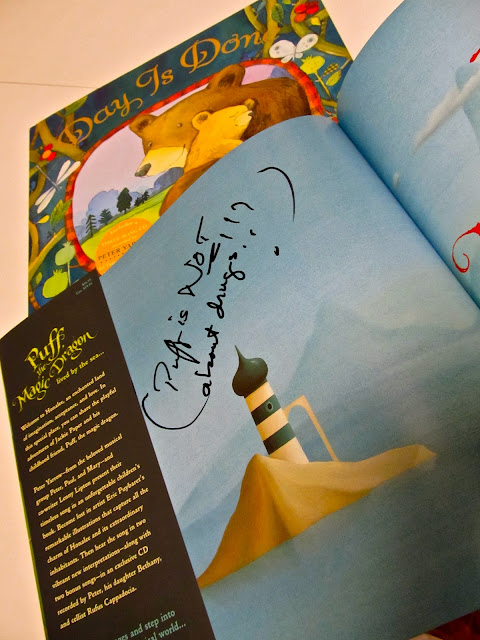 Day Is Don
PETER YAR
(Puff is NOT!!!
about drugs!!)
Puff
the
Magic Dragon
lived by the sea...
Welcome to Honalee, an enchanted land
of imagination, acceptance, and love. In
this special place, you can share the playful
adventures of Jackie Paper and his
childhood friend, Puff, the magic dragon.
Peter Yarrow—from the beloved musical
group Peter, Paul, and Mary—and
songwriter Lenny Lipton present their
timeless song in an unforgettable children's
book. Become lost in artist Eric Puybaret's
remarkable illustrations that capture all the
charm of Honalee and its extraordinary
inhabitants. Then hear the song in two
vibrant new interpretations—along with
two bonus songs—in an exclusive CD
recorded by Peter, his daughter Bethany,
and cellist Rufus Cappadocia.
and step into
world...